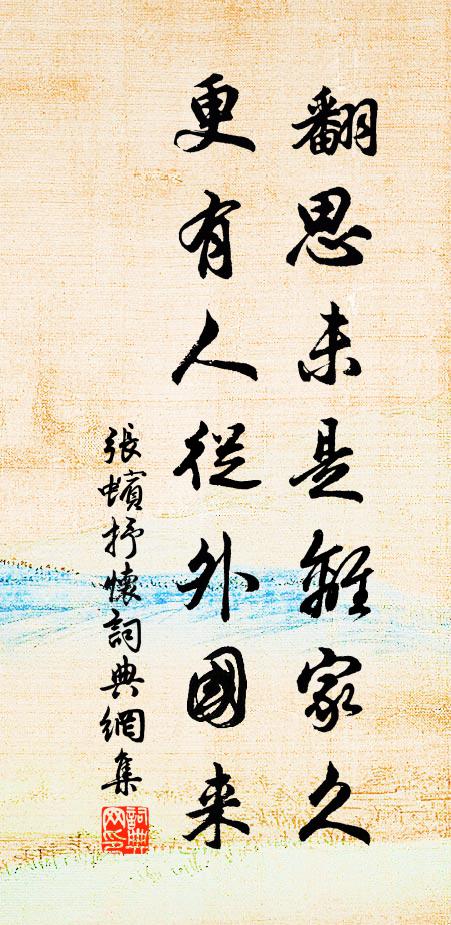 翻思未是離家久
更有人從外國来
張蠙抒懷詞典網集
詞典
网印